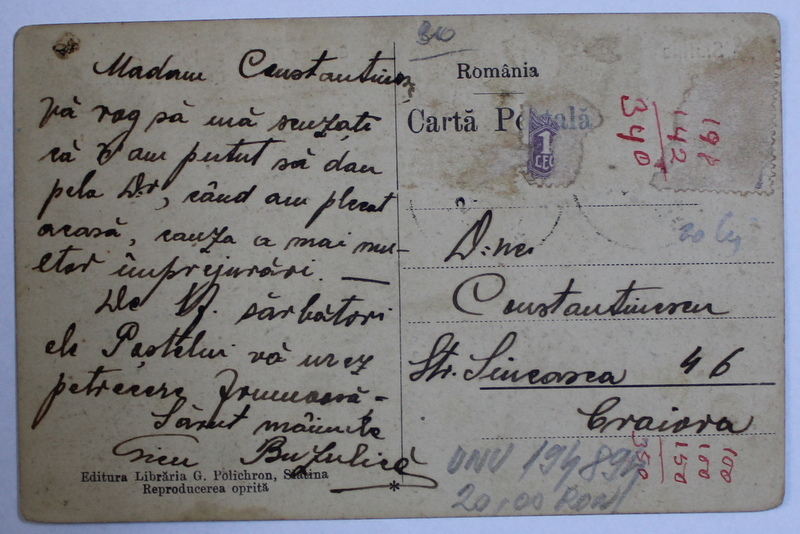 Madam Constantinescu
Vă rog să mă scuzați
că n'am putut să dau
pela Dv, când am plecat
acasă, cauza a mai mu-
ltor împrejurări. —
De Sf. sărbători
ale Paștelui vă urez
petrecere frumoasă -
Sărut mâinile
Buzulică
Editura Librăria G. Polichron, Slatina
Reproducerea oprită
*
310
România
Cartă Poștală
1
198
142
340
20 lei
D-nei
Constantinescu
Str. Sineasca 46
Craiova
100
100
150
350
20,00 RON